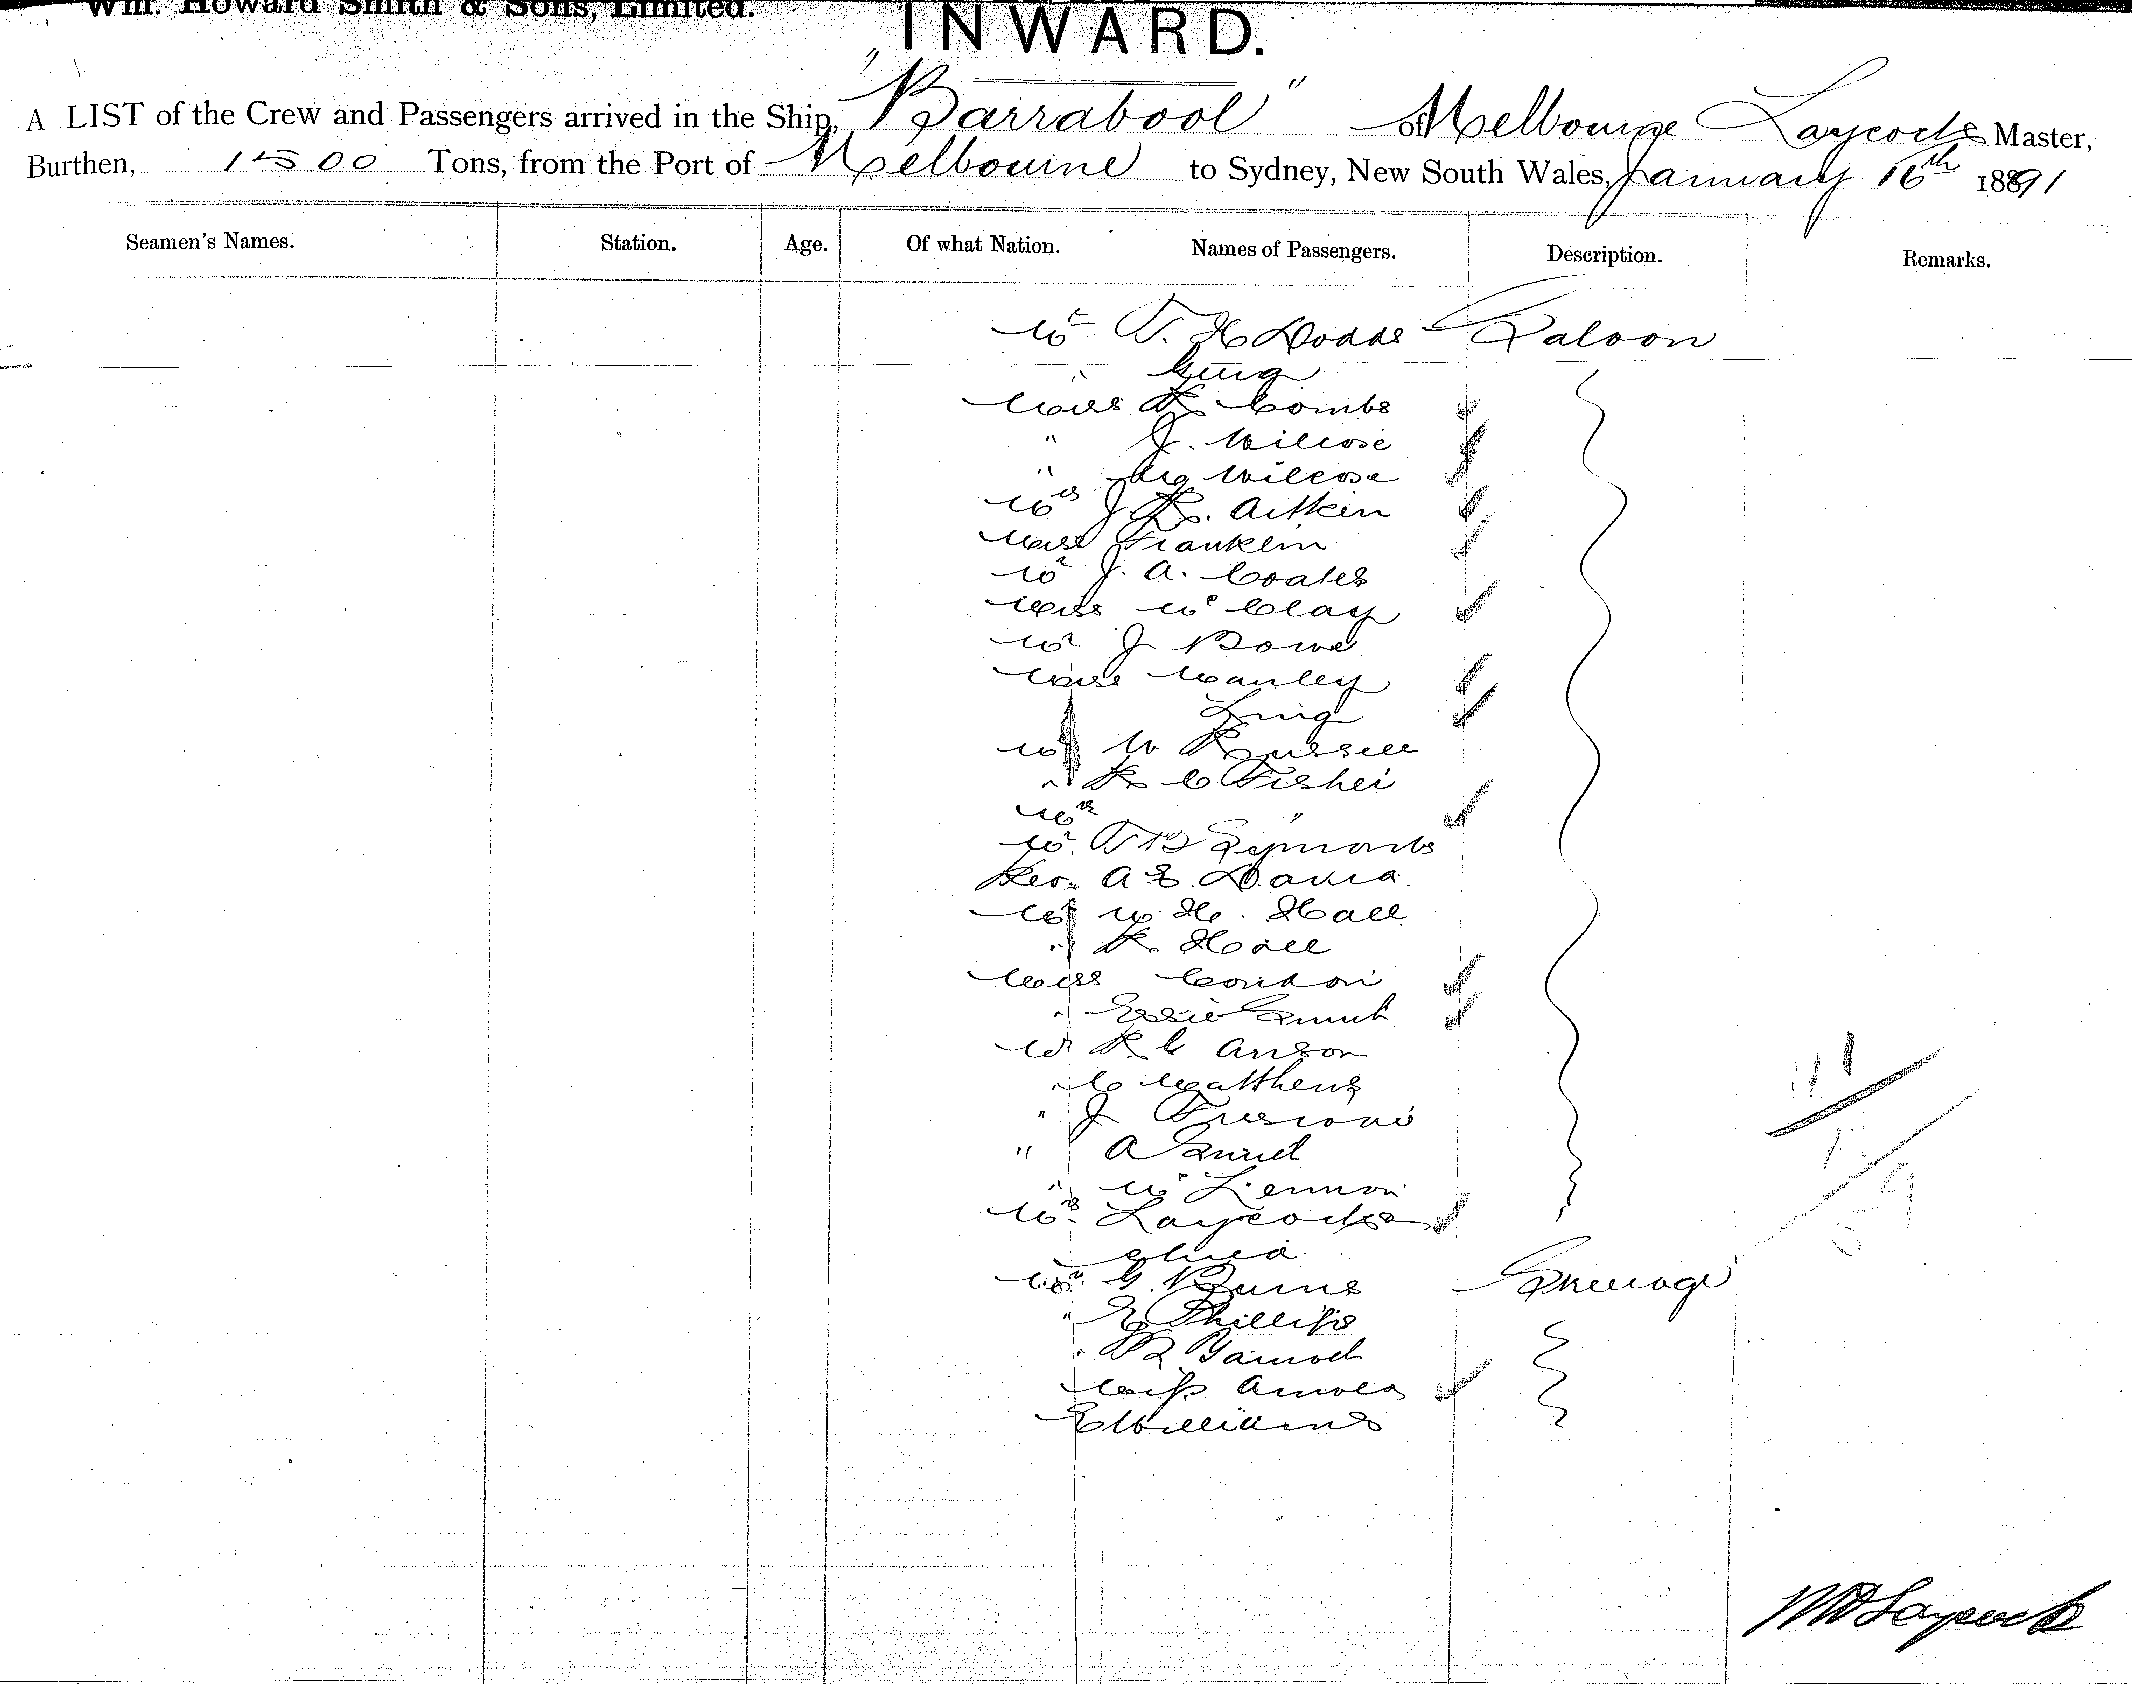 Wm. Howard Smith & Sons, Limited.
INWARD.
A LIST of the Crew and Passengers arrived in the Ship, "Barrabool" of Melbourne Laycock Master,
Burthen, 1500 Tons, from the Port of Melbourne to Sydney, New South Wales, January 16th 1891
Seamen's Names. Station. Age. Of what Nation. Names of Passengers. Description. Remarks.
Mr T. H Dodds Saloon
" King
Miss R Combs
" J. Wilcose
" Wilcose
Mrs J R. Aitken
Miss Franklin
Mr J. A. Coates
Miss Mc Clay
Mr J Bowe
Miss Manley
King
Mr W Russell
" R C Fisher
Mrs "
Mr T B Symonds
Rev. A E David
Mr W. H. Hall
" R. Hall
Miss Condon
" Essie
Mr R C Anson
" C Matthews
" J
" A
" Lennon
Mrs Laycock
child
Mr G. Burns Steerage
" E Phillips
"
Miss Arnold
E Williams
W D Laycock